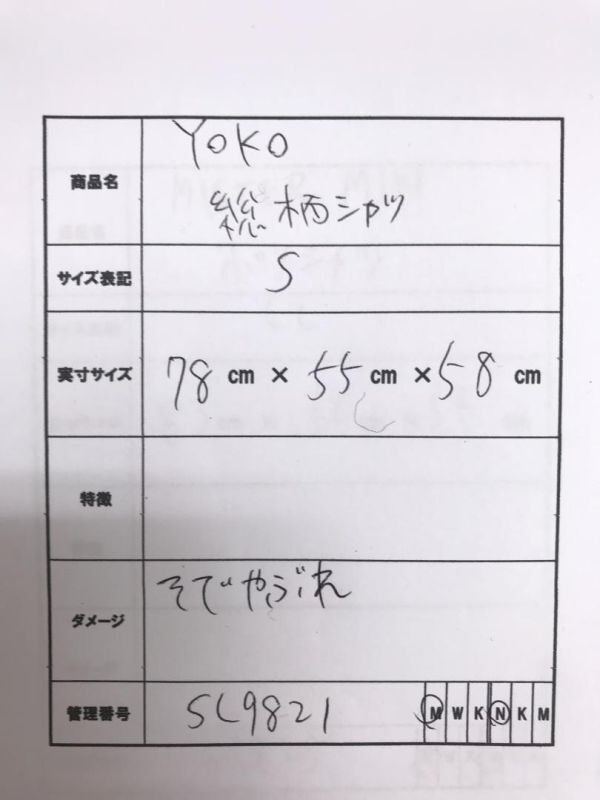 商品名 YOKO
総柄シャツ
サイズ表記 S
実寸サイズ 78 cm × 55 cm × 58 cm
特徴
ダメージ そでやぶれ
管理番号 SL9821 M W K N K M